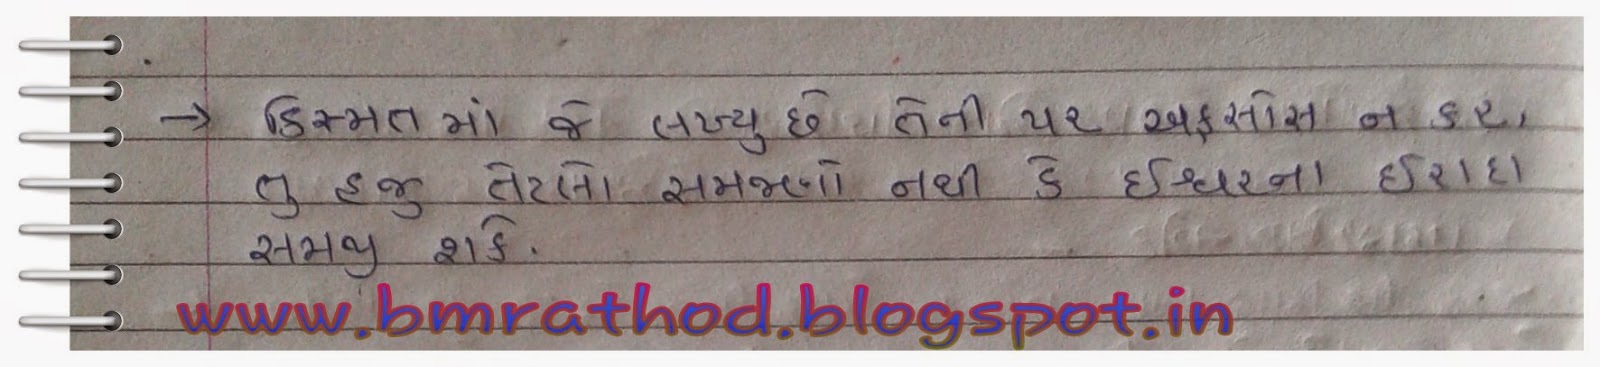 → કિસ્મત માં જે લખ્યુ છે તેની પર અફસોસ ન કર,
તુ હજુ તેટલો સમજણો નથી કે ઈશ્વરના ઈરાદા
સમજી શકે.
www.bmrathod.blogspot.in